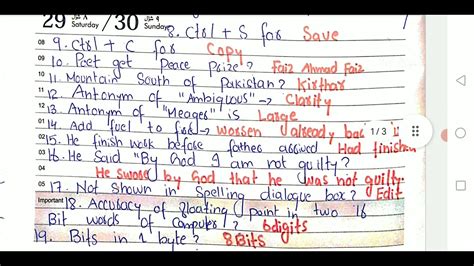 29 Saturday / 30 Sunday
8. Ctrl + S for Save
08 9. Ctrl + C for Copy
09 10. Poet get Peace Prize? Faiz Ahmad Faiz
10 11. Mountain South of Pakistan? Kirthar
11 12. Antonym of "Ambiguous" → Clarity
12 13. Antonym of "Meager" is Large
01 14. Add fuel to → worsen already bad
1/3
02 15. He finish work before father arrived Had finished
03 16. He Said "By God I am not guilty?
04 He swore by God that he was not guilty.
05 17. Not Shown in Spelling dialogue box? Edit
Important 18. Accuracy of floating point in two 16
Bit words of Computer? 6digits
19. Bits in 1 byte? 8Bits